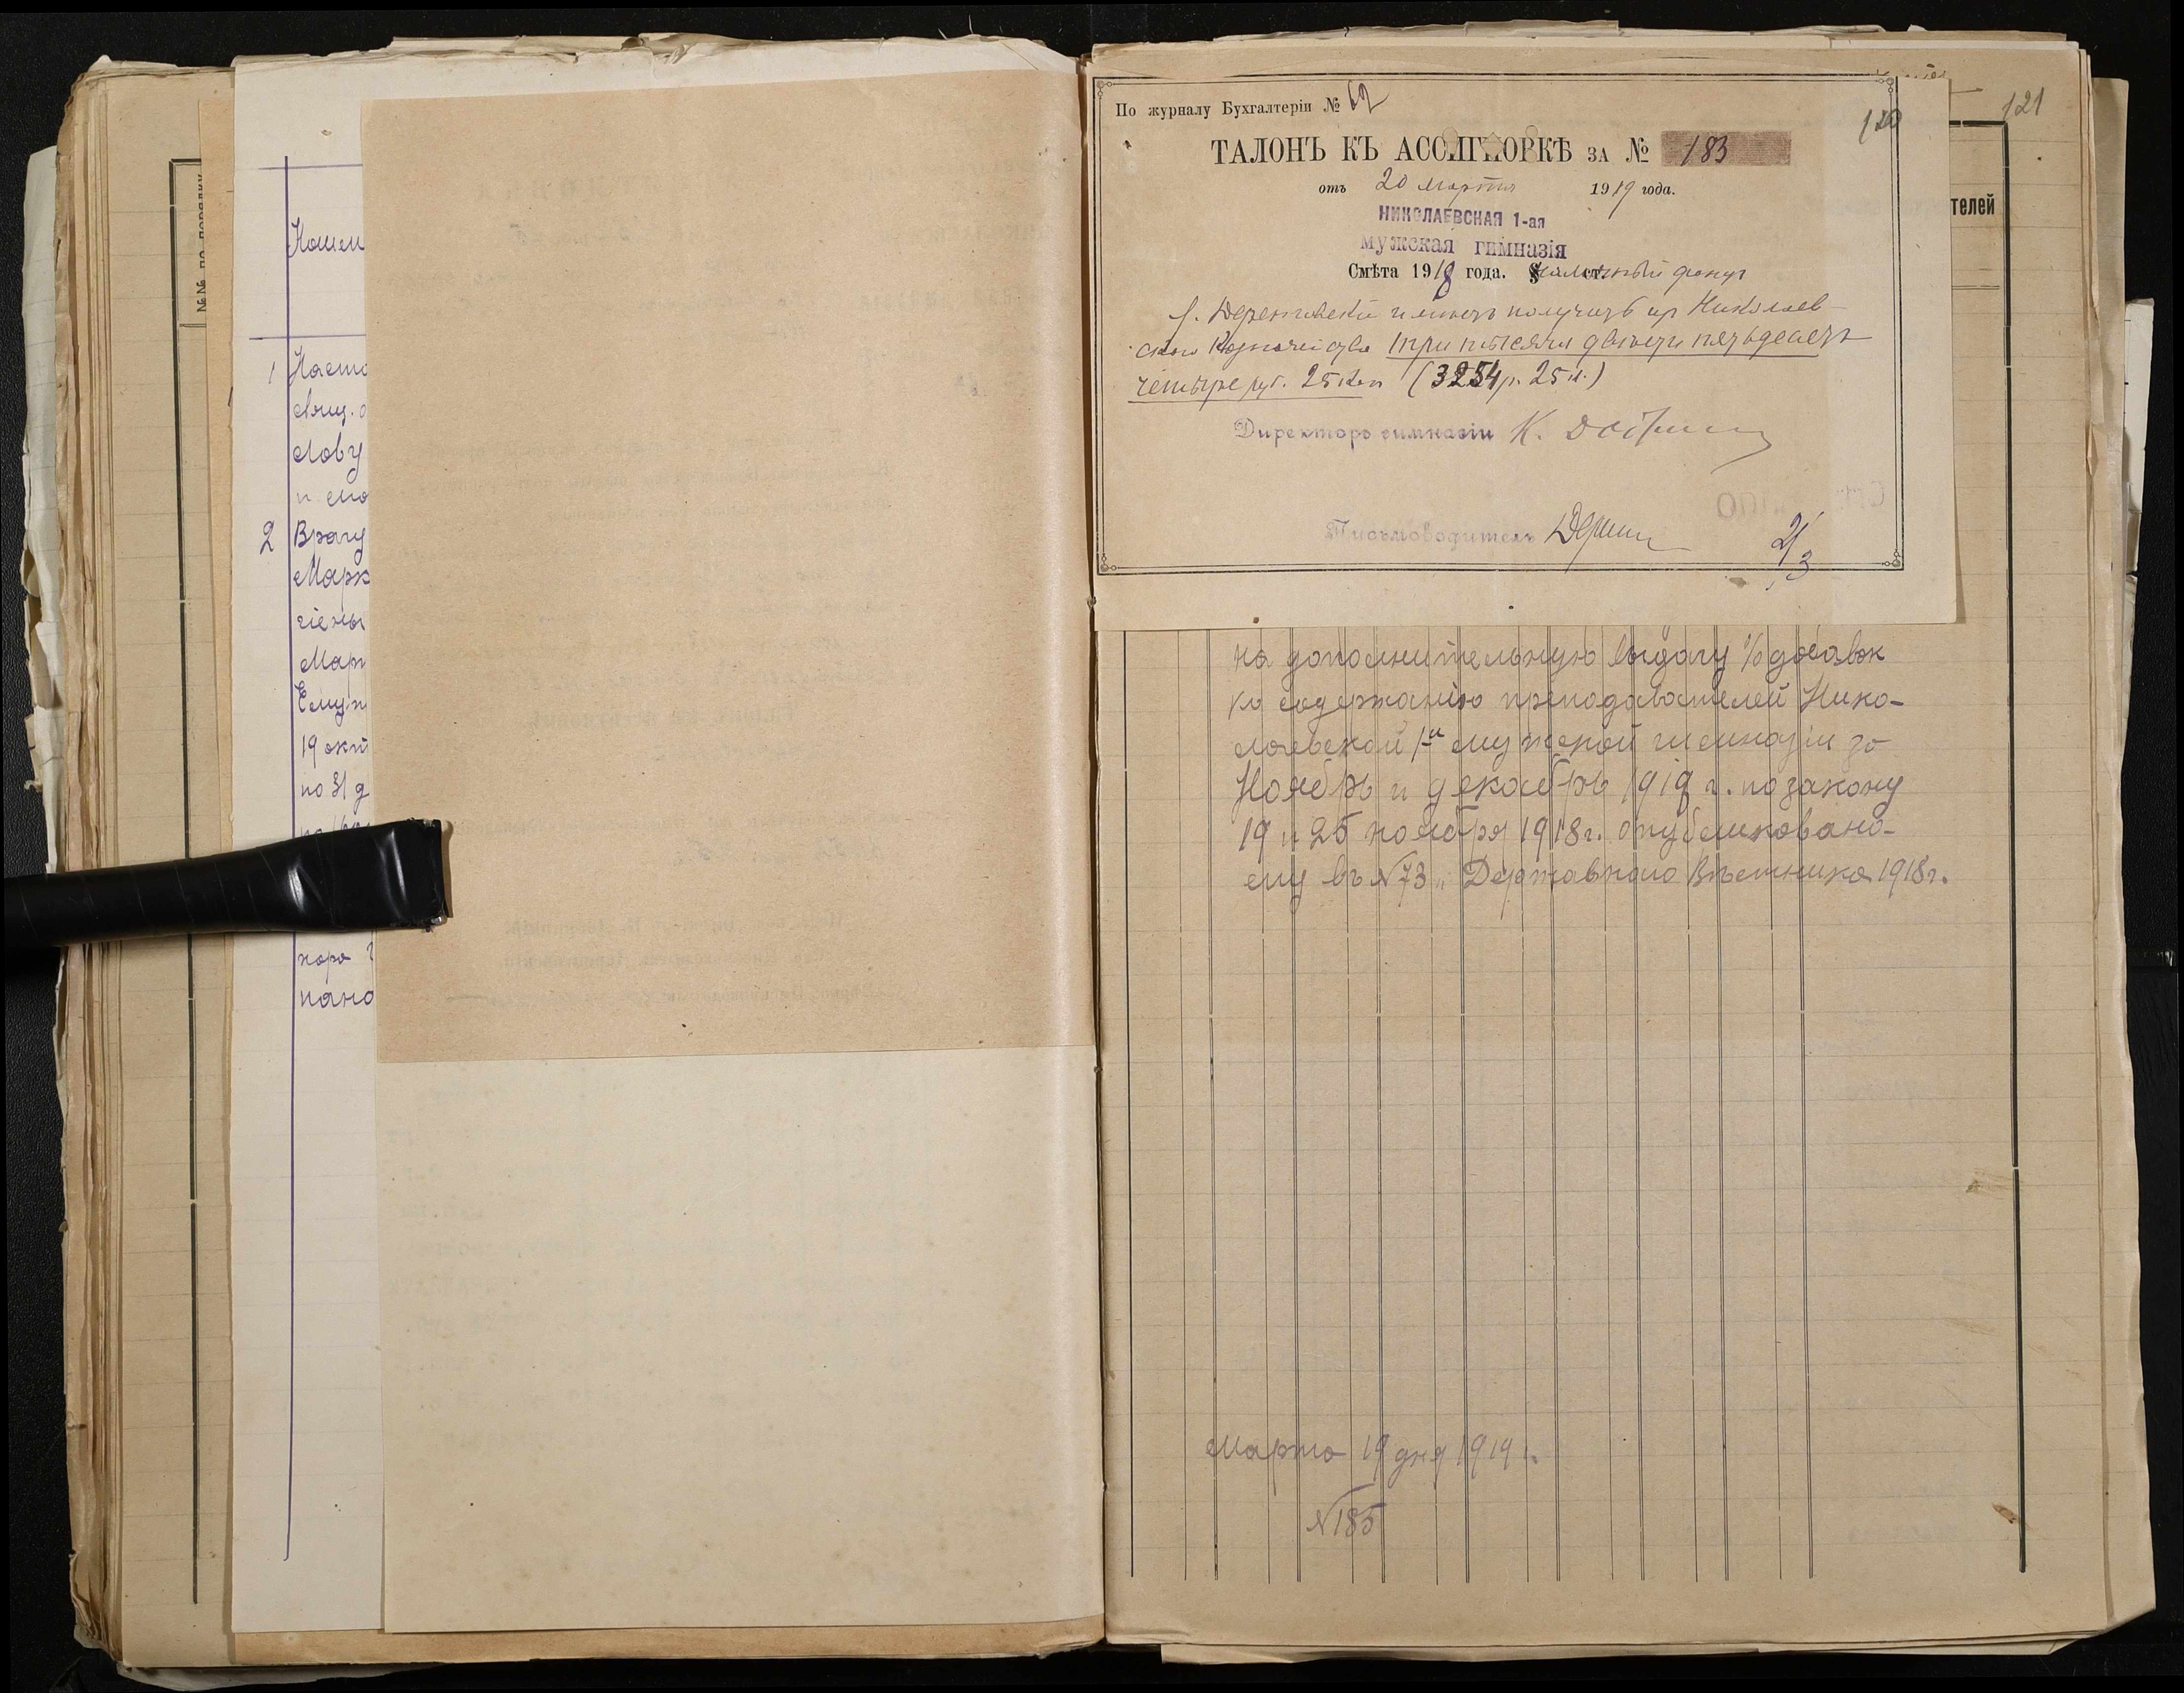 №№ по порядку
Наим
1 Наста
свящ. о
лову
и
2 Врачу
Марк
Мар
Ему
19 окт
по 31 д
коро
пано
121
120
телей
По журналу Бухгалтеріи № 62
ТАЛОНЪ КЪ АССИГНОВКѢ ЗА № 183
отъ 20 марта 1919 года.
НИКОЛАЕВСКАЯ 1-ая
мужская гимназія
Смѣта 1918 года. § ст. фонд
г. имеетъ получить из Николаев
скаго Казначейства три тысячи двести пятьдесятъ
четыре руб. 25 коп (3254 р. 25 к.)
Директоръ гимназіи К.
Письмоводитель
21/3
на дополнительную выдачу % добавок
къ содержанію преподавателей Нико-
лаевской 1-й мужской гимназіи за
Ноябрь и декабрь 1918 г. по закону
19 и 25 ноября 1918 г. опубликовано-
му въ № 73 „Державнаго Вѣстника 1918 г.
Марта 19 дня 1919 г.
№ 185